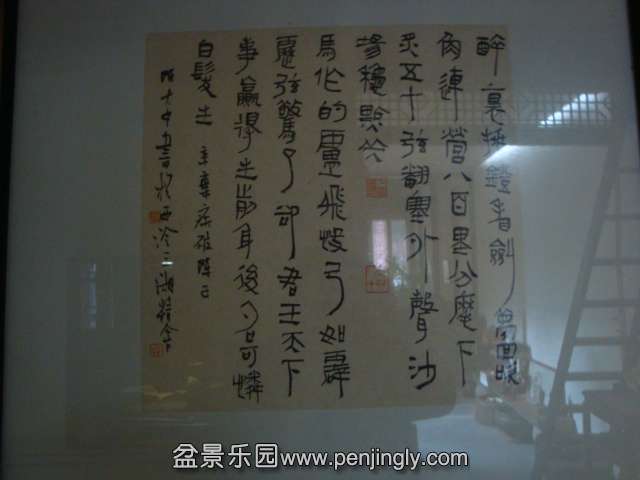 醉裏挑鐙看劍夢回吹
角連營八百里分麾下
炙五十弦翻塞外聲沙
場穐點兵
馬作的盧飛快弓如霹
靂弦驚了卻君王天下
事贏得生前身後名可憐
白髮生 辛棄疾破陣子
書於西泠
盆景乐园www.penjingly.com